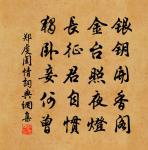 銀鑰開香閣
金台照夜燈
長征君自慣
獨臥妾何曾
鄭虔閨情詞典網集